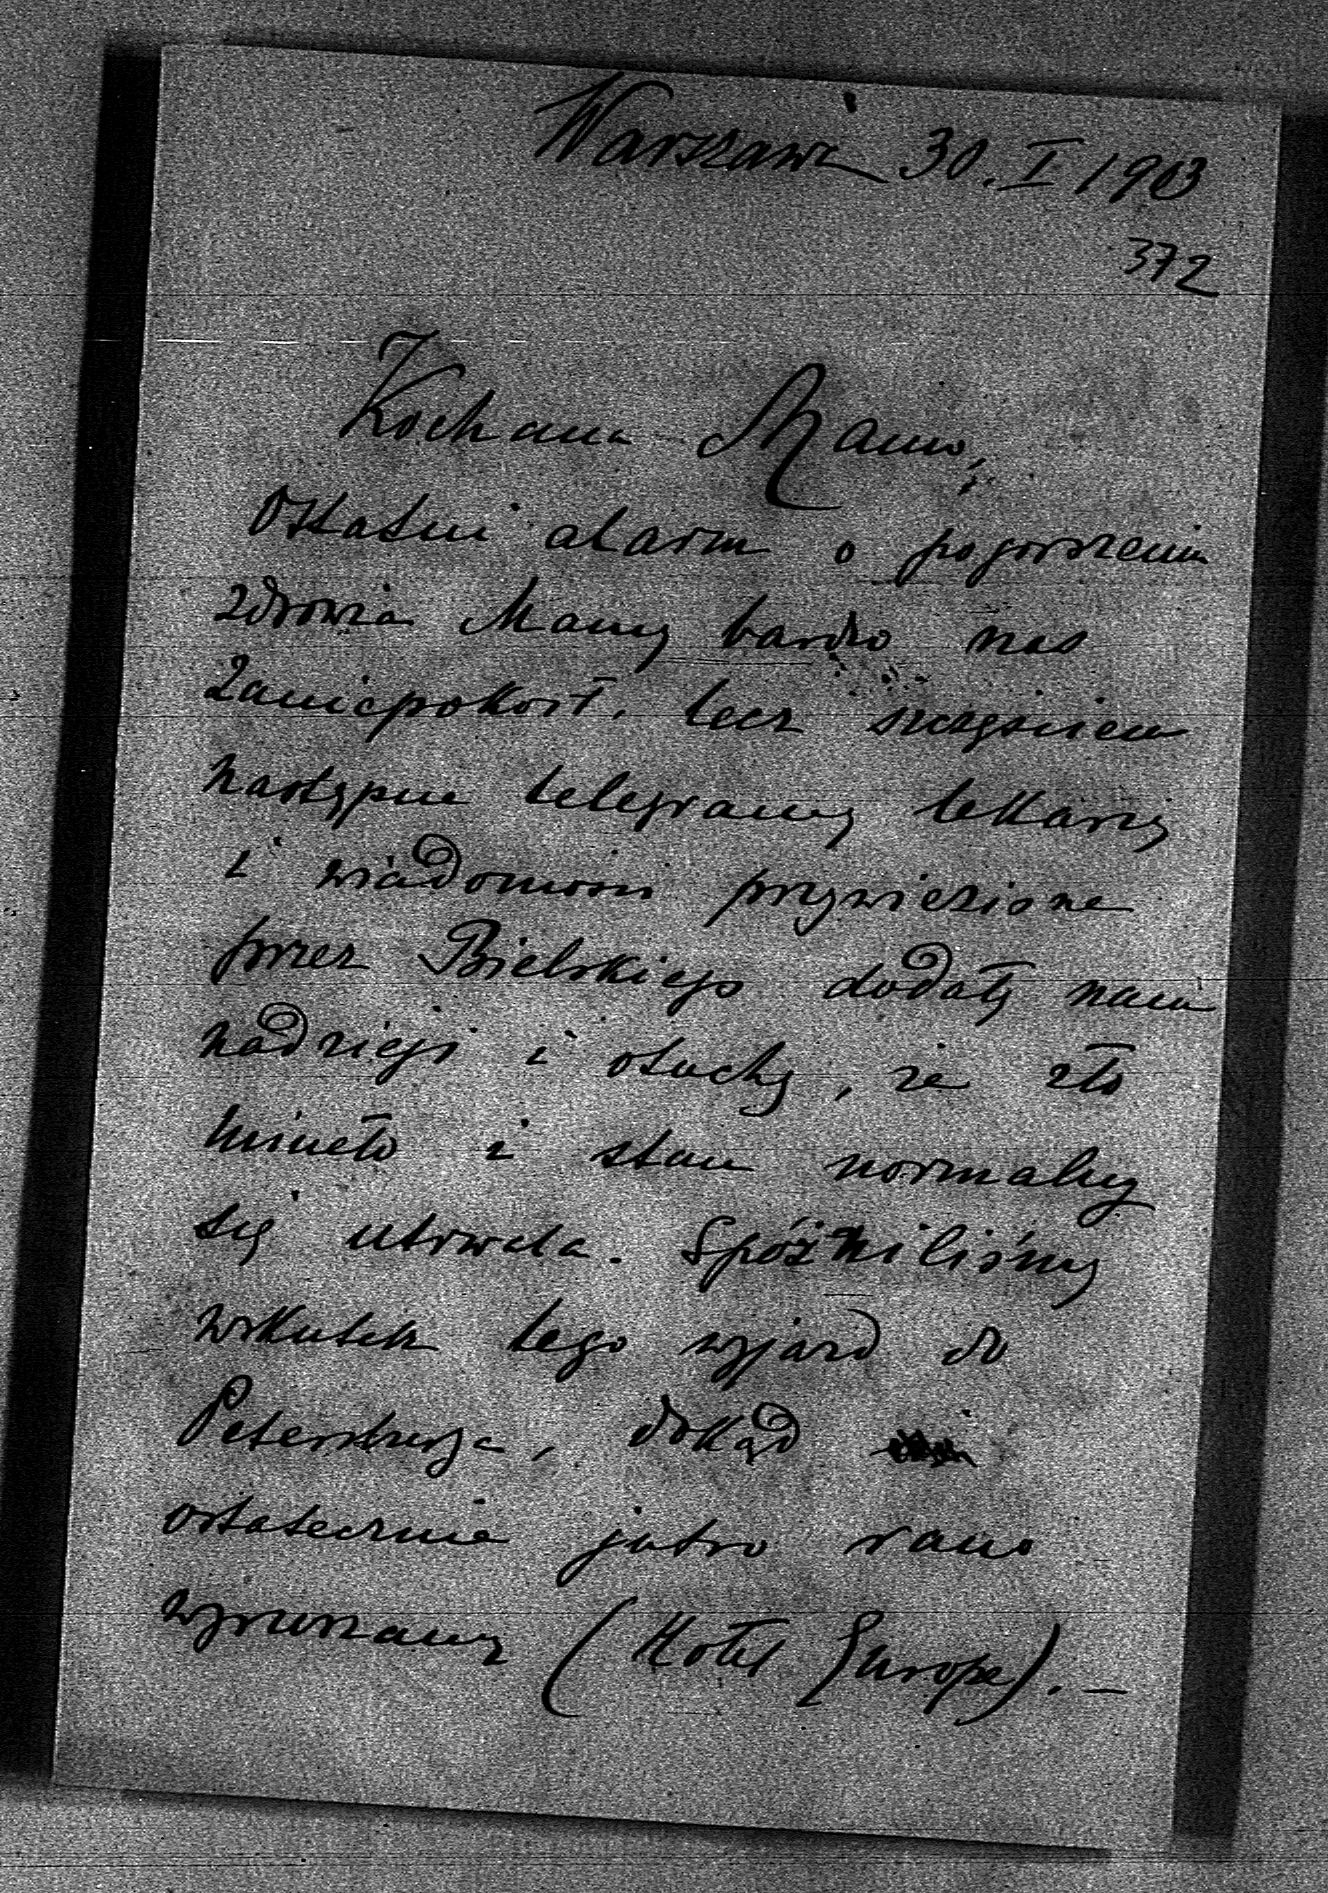 Warszawa 30. I 1903
372
Kochana Mamo,
Ostatni alarm o pogorszeniu
zdrowia Mamy bardzo nas
zaniepokoił, lecz szczęściem
następne telegramy lekarzy
i wiadomości przywiezione
przez Bielskiego dodały nam
nadzieji i otuchy, że zło
minęło i stan normalny
się utrwala. Spóźniliśmy
wskutek tego wyjazd do
Petersburga, dokąd
ostatecznie jutro rano
wyruszamy (Hotel Europe). –